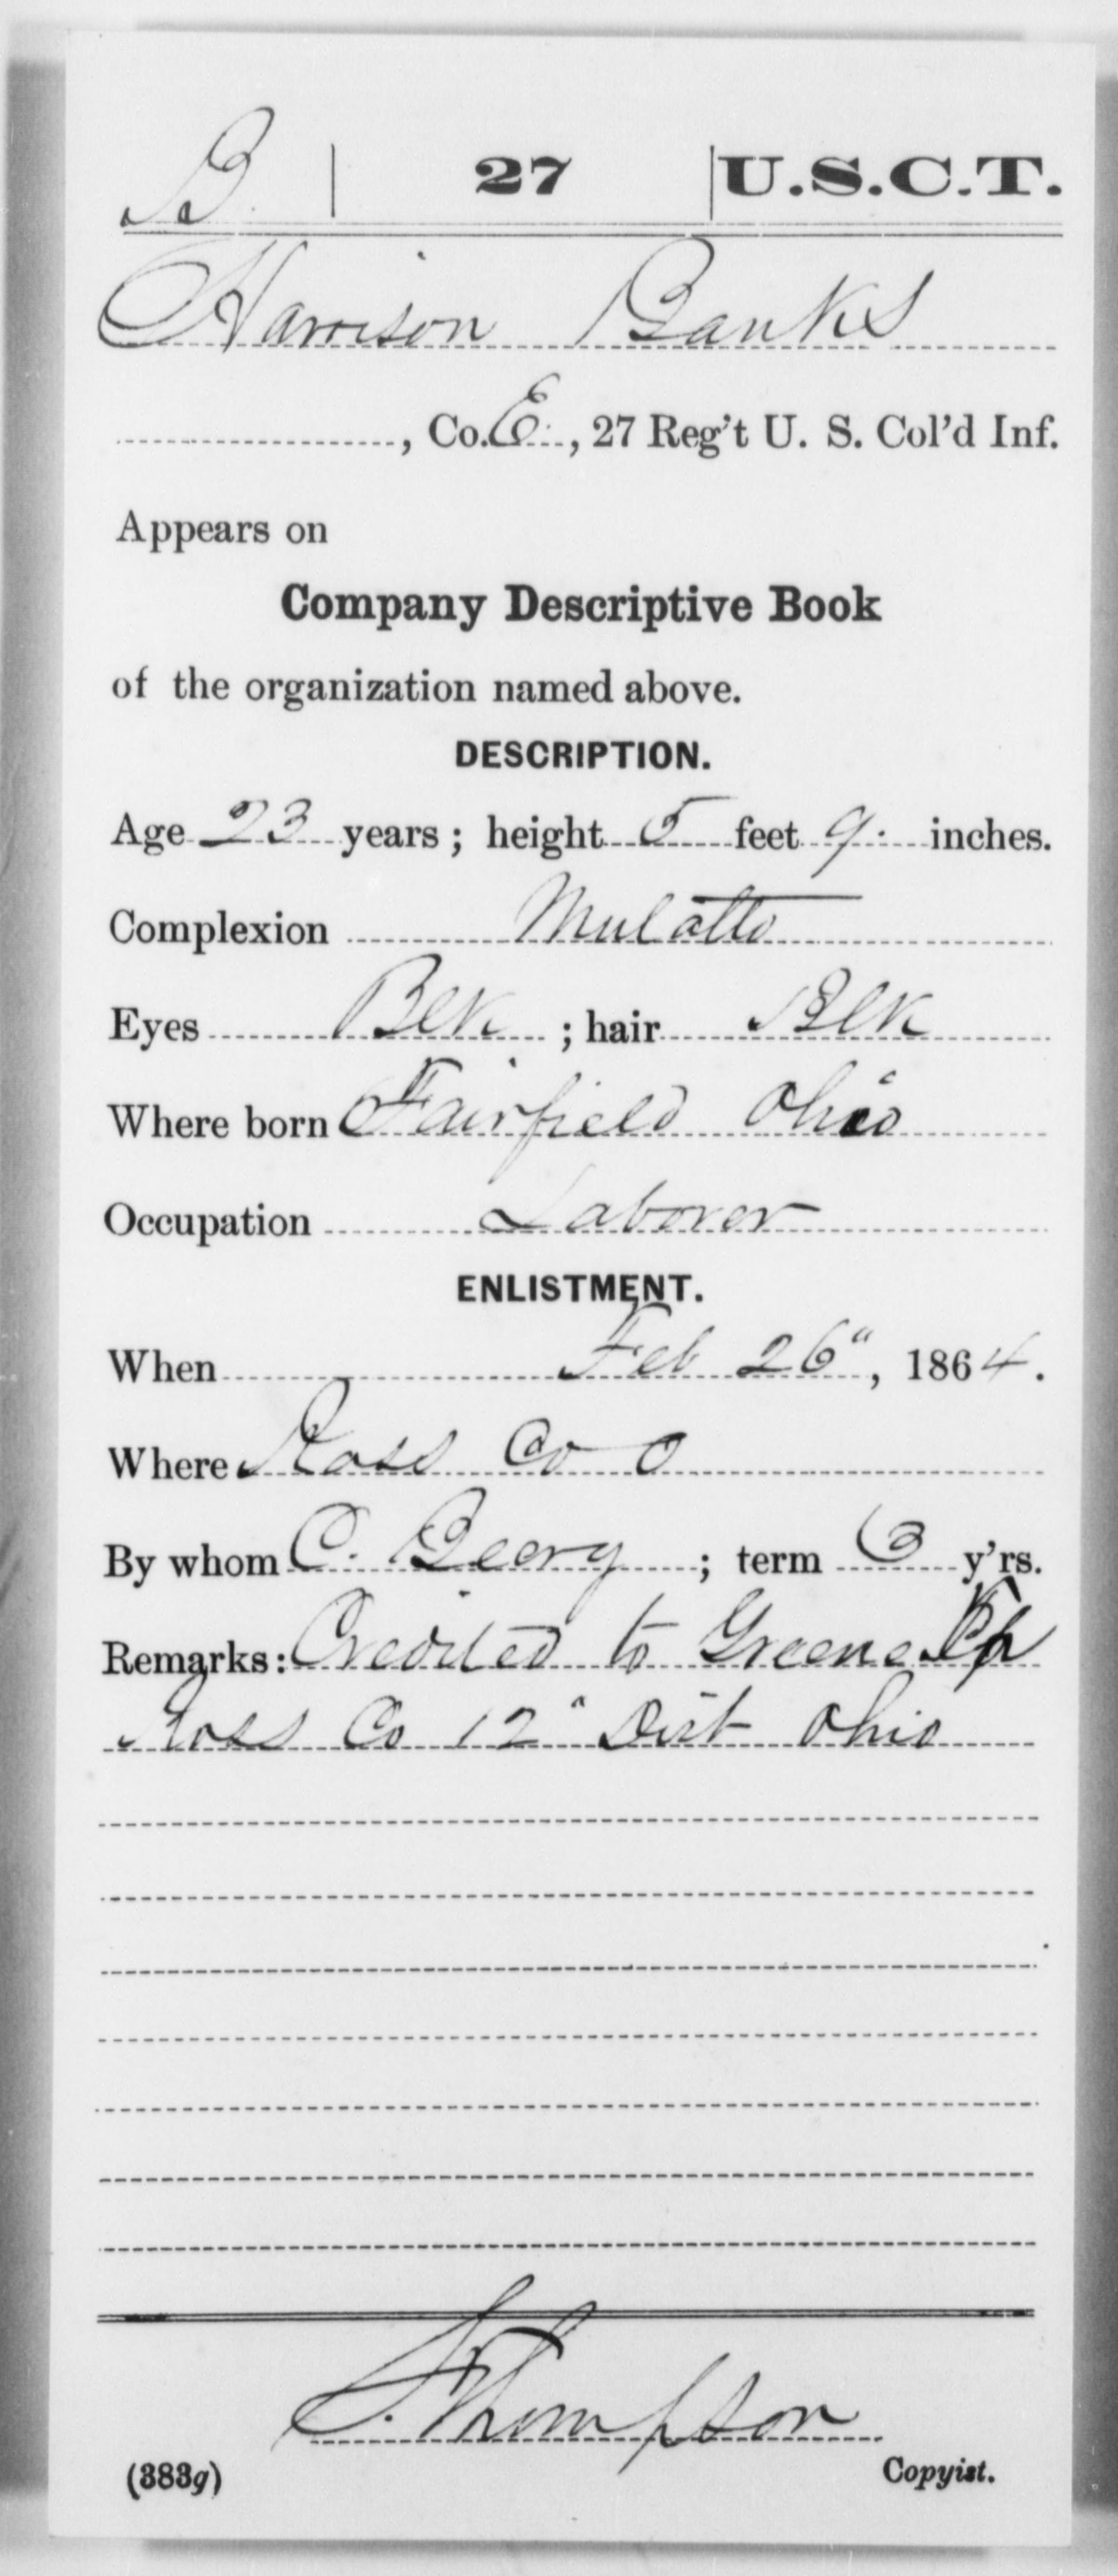 B | 27 | U.S.C.T.
Harrison Banks
, Co. E, 27 Reg't U. S. Col'd Inf.
Appears on
Company Descriptive Book
of the organization named above.
DESCRIPTION.
Age 23 years; height 5 feet 9 inches.
Complexion Mulatto
Eyes Blk ; hair Blk
Where born Fairfield Ohio
Occupation Laborer
ENLISTMENT.
When Feb 26", 1864.
Where Ross Co O
By whom C. Beery ; term 3 y'rs.
Remarks: Credited to Greene Tp
Ross Co 12" Dist Ohio
S. Thompson
(383g) Copyist.